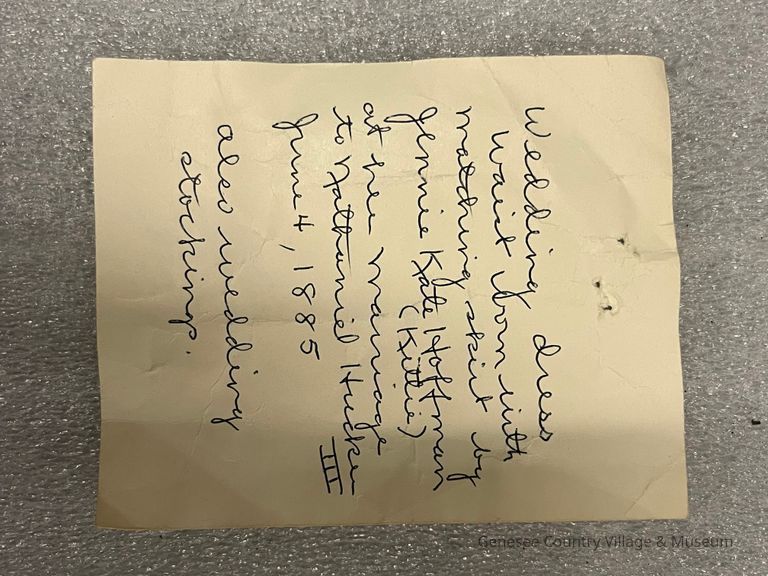 Wedding dress
waist worn with
matching skirt by
Jennie Kate Hoffman
(Kittie)
at her marriage
to Nathaniel Hucker
III
June 4, 1885
also wedding
stockings.
Genesee Country Village & Museum